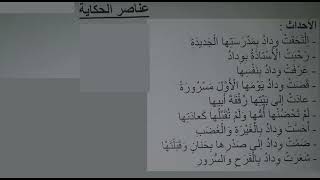 عناصر الحكاية
الأحداث :
- اَلْتَحَقَتْ وِدَادُ بِمَدْرَسَتِهَا الْجَدِيدَةِ
- رَحَّبَتِ الْأُسْتَاذَةُ بِوِدَادُ
- عَرَّفَتْ وِدَادُ بِنَفْسِهَا
- قَضَتْ وِدَادُ يَوْمَهَا الْأَوَّلَ مَسْرُورَةً
- عَادَتْ إِلَى بَيْتِهَا رُفْقَةَ أَبِيهَا
- لَمْ تَحْضُنْهَا أُمُّهَا وَلَمْ تُقَبِّلْهَا كَعَادَتِهَا
- أَحَسَّتْ وِدَادُ بِالْغَيْرَةِ وَالْغَضَبِ
- ضَمَّتْ وِدَادُ إِلَى صَدْرِهَا بِحَنَانٍ وَقَبَّلَتْهَا
- شَعَرَتْ وِدَادُ بِالْفَرَحِ وَالسُّرُورِ